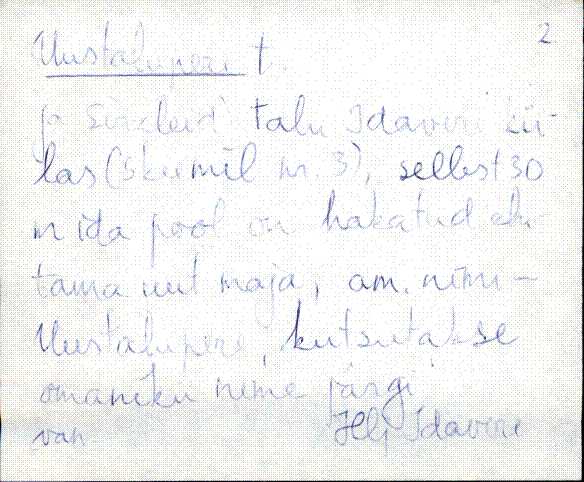 2
Uustalupere t.
ja talu Idavere kü-
las (skeemil nr. 3), sellest 30
m ida pool on hakatud ehi-
tama uut maja, am. nimi -
Uustalupere, kutsutakse
omaniku nime järgi
Hlj Idavere